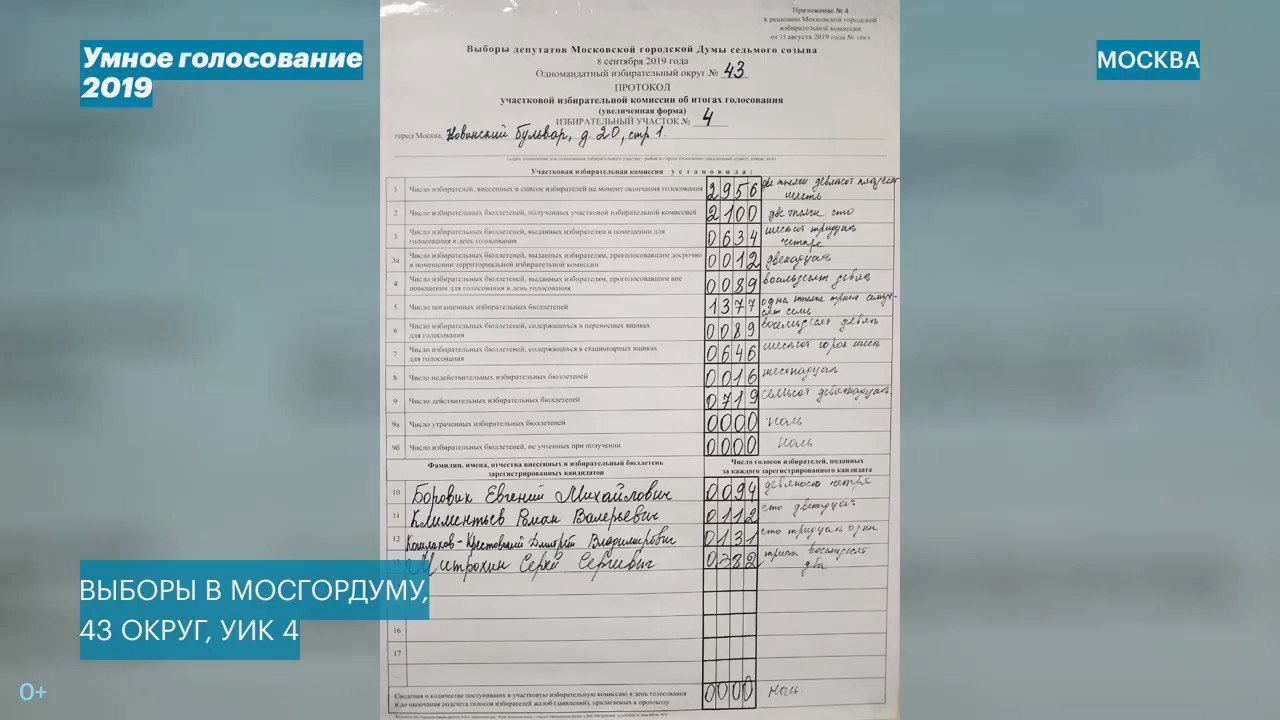 Умное голосование
2019
МОСКВА
Приложение № 4
к решению Московской городской
избирательной комиссии
от 15 августа 2019 года №
Выборы депутатов Московской городской Думы седьмого созыва
8 сентября 2019 года
Одномандатный избирательный округ № 43
ПРОТОКОЛ
участковой избирательной комиссии об итогах голосования
(увеличенная форма)
ИЗБИРАТЕЛЬНЫЙ УЧАСТОК № 4
город Москва, Новинский бульвар, д. 20, стр 1.
Участковая избирательная комиссия установила:
1 Число избирателей, внесенных в список избирателей на момент окончания голосования 2956 две тысячи девятьсот пятьдесят
шесть
2 Число избирательных бюллетеней, полученных участковой избирательной комиссией 2100 две тысячи сто
3 Число избирательных бюллетеней, выданных избирателям в помещении для
голосования в день голосования 0634 шестьсот тридцать
четыре
3а Число избирательных бюллетеней, выданных избирателям, проголосовавшим досрочно
в помещении территориальной избирательной комиссии 0012 двенадцать
4 Число избирательных бюллетеней, выданных избирателям, проголосовавшим вне
помещения для голосования в день голосования 0089 восемьдесят девять
5 Число погашенных избирательных бюллетеней 1377 одна тысяча триста семьде-
сят семь
6 Число избирательных бюллетеней, содержащихся в переносных ящиках
для голосования 0089 восемьдесят девять
7 Число избирательных бюллетеней, содержащихся в стационарных ящиках
для голосования 0646 шестьсот сорок шесть
8 Число недействительных избирательных бюллетеней 0016 шестнадцать
9 Число действительных избирательных бюллетеней 0719 семьсот девятнадцать
9а Число утраченных избирательных бюллетеней 0000 ноль
9б Число избирательных бюллетеней, не учтенных при получении 0000 ноль
Фамилии, имена, отчества внесенных в избирательный бюллетень
зарегистрированных кандидатов
Число голосов избирателей, поданных
за каждого зарегистрированного кандидата
10 Боровик Евгений Михайлович 0094 девяносто четыре
11 Климентьев Роман Валерьевич 0112 сто двенадцать
12 Кошлаков-Крестовский Дмитрий Владимирович 0131 сто тридцать один
13 Митрохин Сергей Сергеевич 0382 триста восемьдесят
два
16
17
Сведения о количестве поступивших в участковую избирательную комиссию в день голосования
и до окончания подсчета голосов избирателей жалоб (заявлений), прилагаемых к протоколу 0000 ноль
ВЫБОРЫ В МОСГОРДУМУ,
43 ОКРУГ, УИК 4
0+